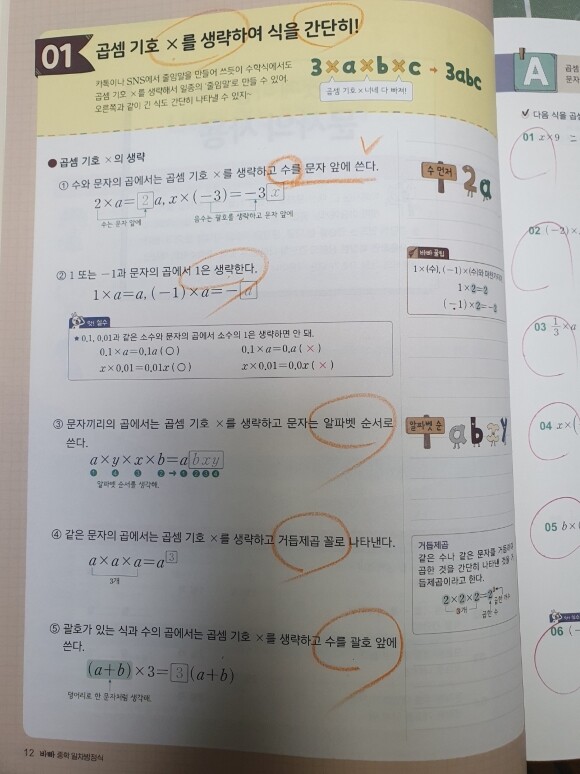 01 곱셈 기호 ×를 생략하여 식을 간단히!
카톡이나 SNS에서 줄임말을 만들어 쓰듯이 수학식에서도
곱셈 기호 ×를 생략해서 일종의 '줄임말'로 만들 수 있어.
오른쪽과 같이 긴 식도 간단히 나타낼 수 있지~
3×a×b×c → 3abc
곱셈 기호 × 너네 다 빠져!
● 곱셈 기호 ×의 생략
① 수와 문자의 곱에서는 곱셈 기호 ×를 생략하고 수를 문자 앞에 쓴다.
2×a=2a, x×(-3)=-3x
수는 문자 앞에
음수는 괄호를 생략하고 문자 앞에
수 먼저 2a
② 1 또는 -1과 문자의 곱에서 1은 생략한다.
1×a=a, (-1)×a=-a
바빠 꿀팁
1×(수), (-1)×(수)와
1×2=2
(-1)×2=-2
앗! 실수
★ 0.1, 0.01과 같은 소수와 문자의 곱에서 소수의 1은 생략하면 안 돼.
0.1×a=0.1a (○) 0.1×a=0.a (×)
x×0.01=0.01x (○) x×0.01=0.0x (×)
③ 문자끼리의 곱에서는 곱셈 기호 ×를 생략하고 문자는 알파벳 순서로
쓴다.
a×y×x×b=abxy
① ④ ③ ② → ① ② ③ ④
알파벳 순서를 생각해.
알파벳 순 ab y
④ 같은 문자의 곱에서는 곱셈 기호 ×를 생략하고 거듭제곱 꼴로 나타낸다.
a×a×a=a³
3개
거듭제곱
같은 수나 같은 문자를 거듭하여
곱한 것을 간단히 나타낸 것을 거
듭제곱이라고 한다.
2×2×2=2³
3개 곱한 수
곱한 개수
⑤ 괄호가 있는 식과 수의 곱에서는 곱셈 기호 ×를 생략하고 수를 괄호 앞에
쓴다.
(a+b)×3=3(a+b)
덩어리로 한 문자처럼 생각해.
12 바빠 중학 일차방정식
A 곱셈
문자
다음 식을 곱셈
01 x×9
02 (-2)×
03 1/3×a
04 x×(
05 b×
앗! 실수
06 (-